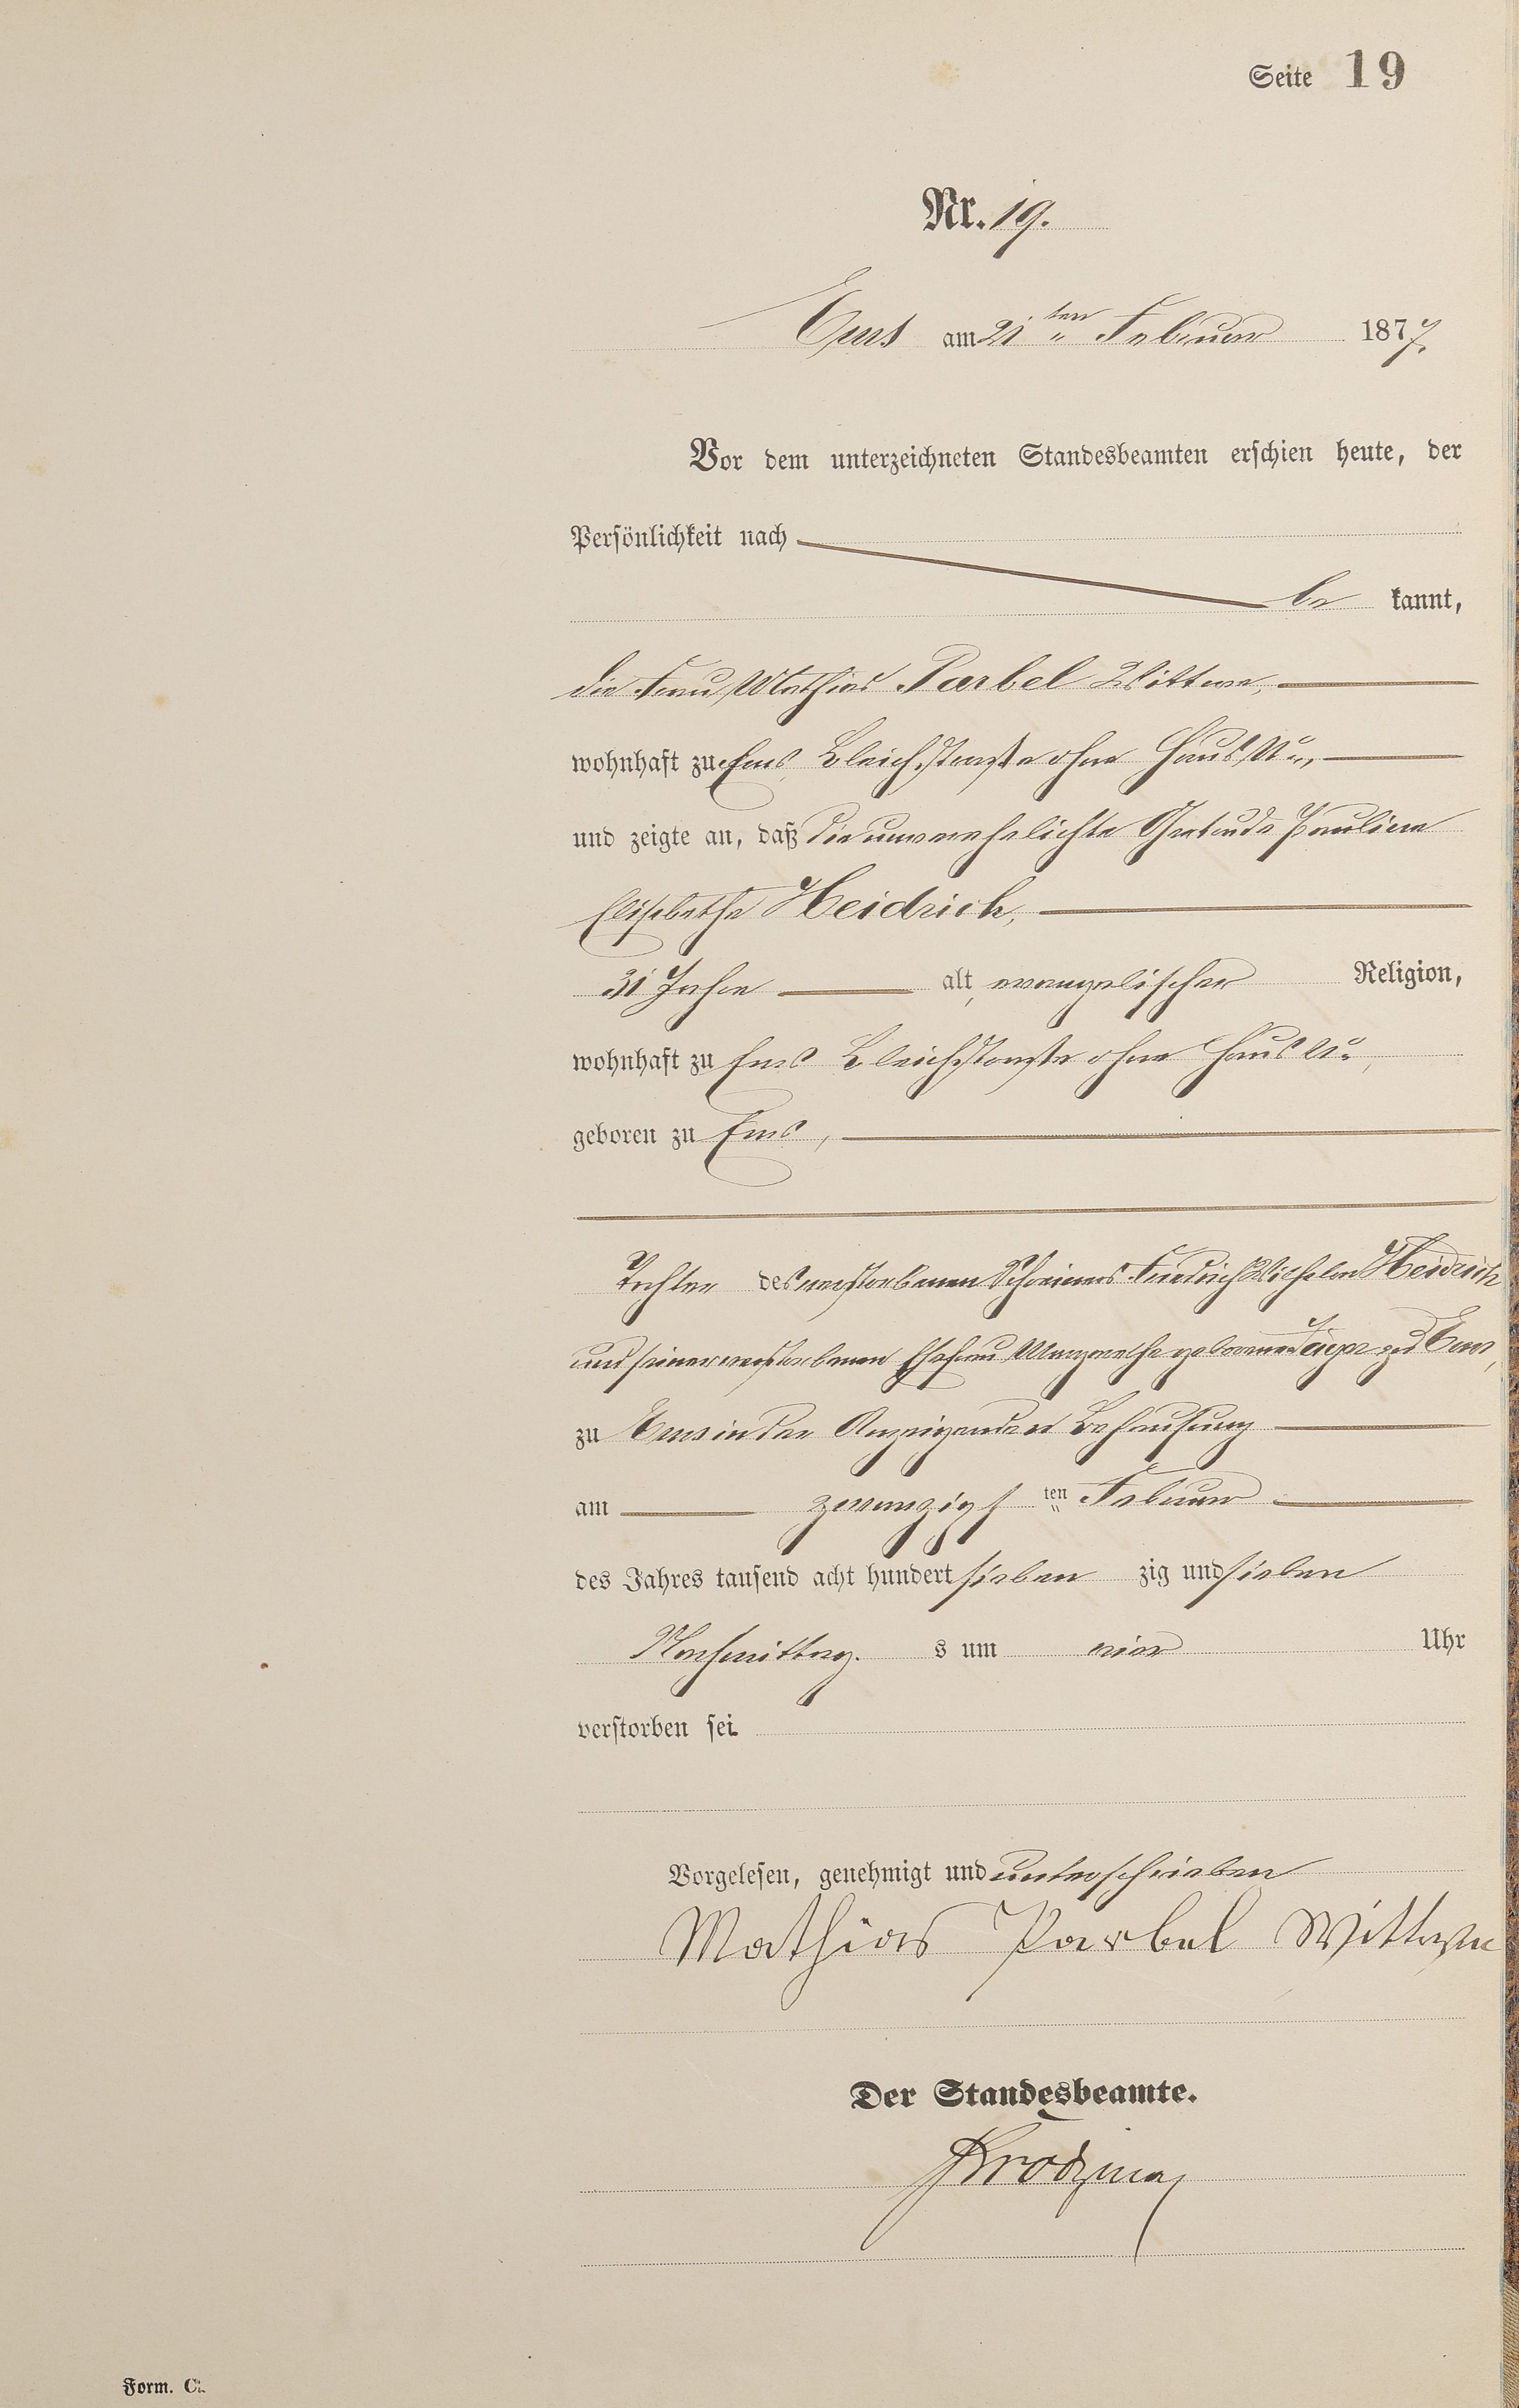 Seite 19
Nr. 19.
Ems am 21ten Februar 1877.
Vor dem unterzeichneten Standesbeamten erschien heute, der
Persönlichkeit nach
be kannt,
die Frau Mathias Parbel Wittwe,
wohnhaft zu Ems, Bleichstraße ohne Haus Nr.,
und zeigte an, daß die unverehelichte Gertrude Pauline
Elisabetha Heidrich,
31 Jahre alt, evangelischer Religion,
wohnhaft zu Ems Bleichstraße ohne Haus Nr.,
geboren zu Ems,
Tochter des verstorbenen Schreiners Friedrich Wilhelm Heidrich
und seiner verstorbenen Ehefrau Margarethe geborene zu Ems,
zu Ems in der Anzeigenden Behausung
am zwanzigs ten Februar
des Jahres tausend acht hundert sieben zig und sieben
Nachmittag s um vier Uhr
verstorben sei
Vorgelesen, genehmigt und unterschrieben
Mathias Parbel Wittwe
Der Standesbeamte.
Form. C.